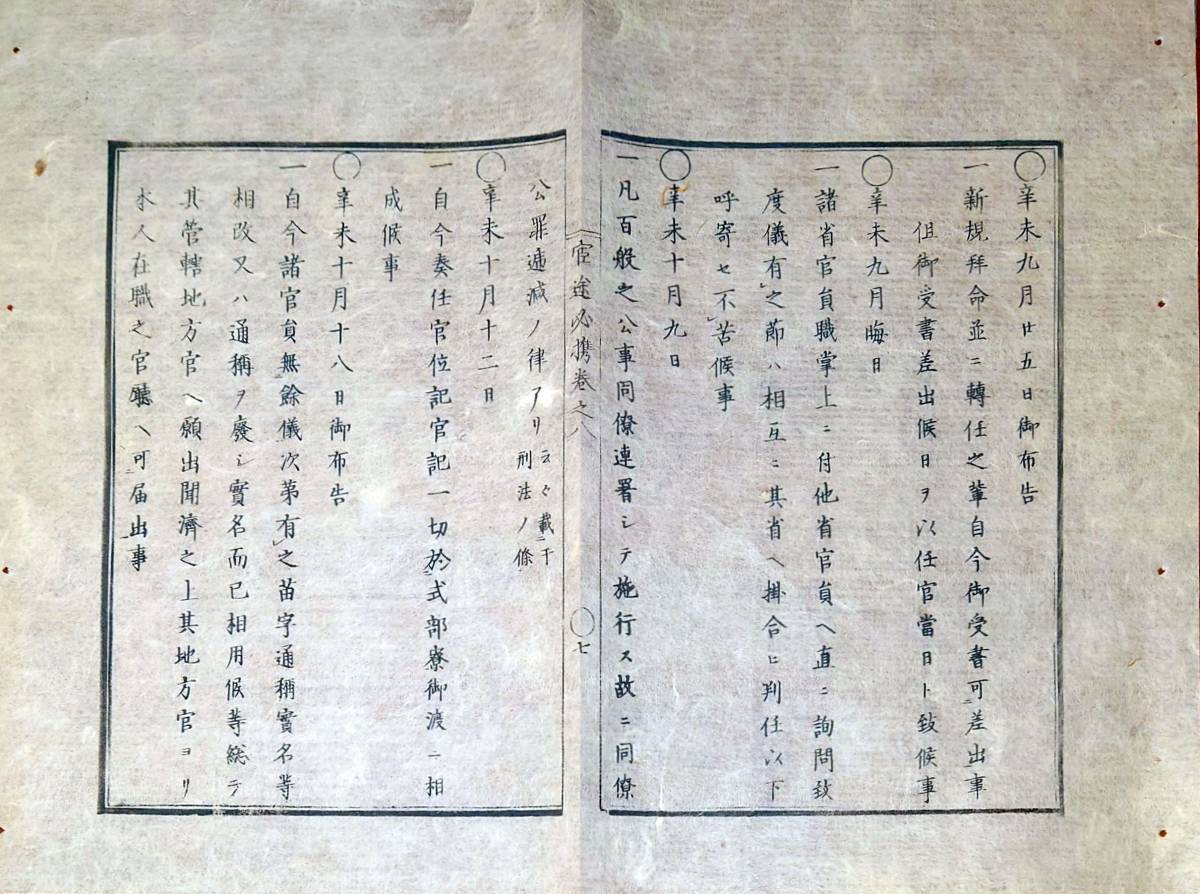 ◯辛未九月廿五日御布告
一新規拜命並ニ轉任之輩自今御受書可差出事
但御受書差出候日ヲ以任官當日ト致候事
◯辛未九月晦日
一諸省官員職掌上ニ付他省官員ヘ直ニ詢問致
度儀有之節ハ相互ニ其省ヘ掛合ヒ判任以下
呼寄セ不苦候事
◯辛未十月九日
一凡百般之公事同僚連署シテ施行ス故ニ同僚
宦途必携巻之八
◯七
公罪遞減ノ律アリ云々載于刑法ノ條
◯辛未十月十二日
一自今奏任官位記官記一切於式部寮御渡ニ相
成候事
◯辛未十月十八日御布告
一自今諸官員無餘儀次第有之苗字通稱實名等
相改又ハ通稱ヲ廢シ實名而已相用候等総テ
其菅轄地方官ヘ願出聞濟之上其地方官ヨリ
本人在職之官廳ヘ可届出事